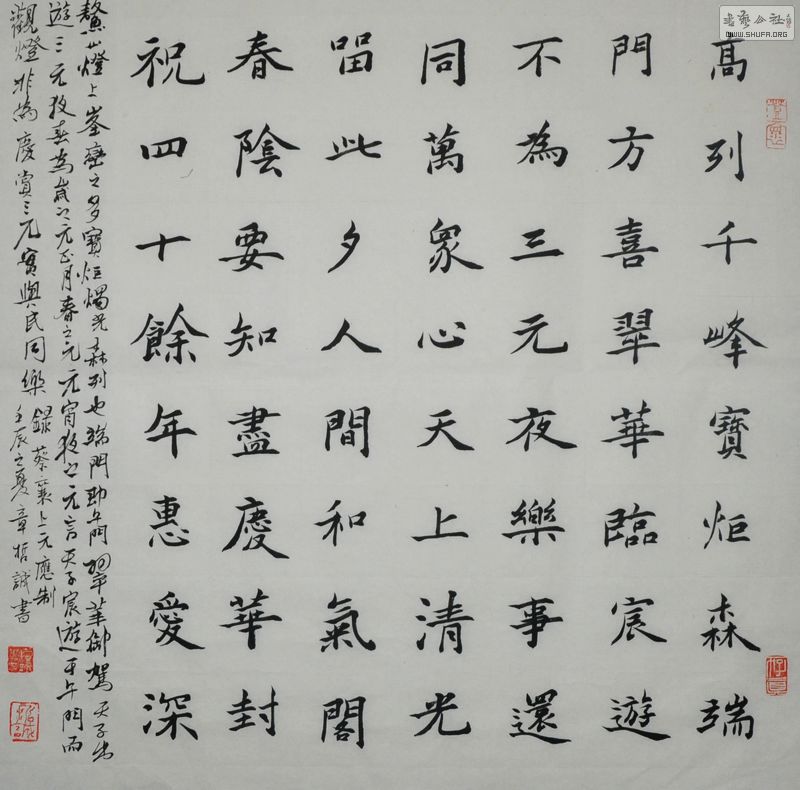 高列千峰寶炬森端
門方喜翠華臨宸遊
不為三元夜樂事還
同萬眾心天上清光
留此夕人間和氣閣
春陰要知盡慶華封
祝四十餘年惠愛深
鰲山燈上峯巒之多寶炬燭光森列也端門即午門翠華御駕天子出
遊三元夜春為歲之元正月春之元元宵夜之元言天子宸遊于午門而
觀燈非為慶賞三元實與民同樂
錄蔡襄上元應制
壬辰之夏章哲誠書
書藝公社
WWW.SHUFA.ORG